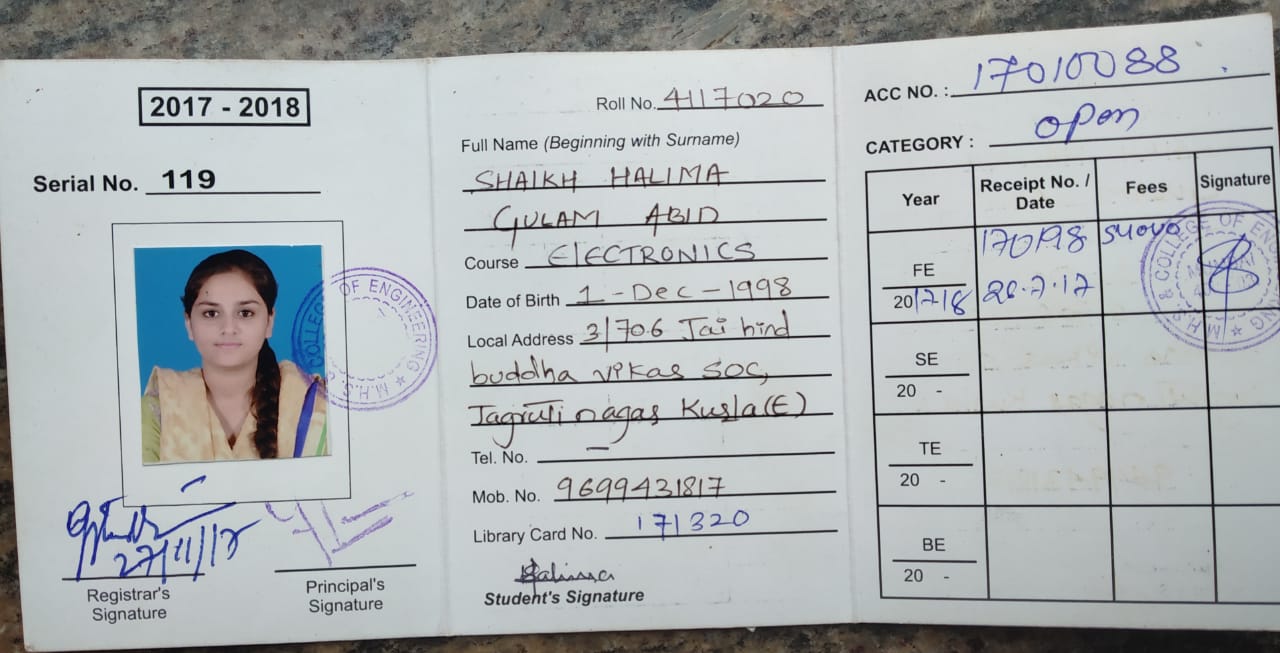 2017 - 2018
Serial No. 119
COLLEGE OF ENGINEERING ★ M.H.S.S.
27/11/17
Registrar's
Signature
Principal's
Signature
Roll No. 4117020
Full Name (Beginning with Surname)
SHAIKH HALIMA
GULAM ABID
Course ElECTRONICS
Date of Birth 1-Dec-1998
Local Address 3/706 Jai hind
buddha vikas soc,
Jagruti nagar Kurla(E)
Tel. No. —
Mob. No. 9699431817
Library Card No. 171320
Halima
Student's Signature
ACC NO. : 17010088
CATEGORY : open
Year Receipt No. / Date Fees Signature
FE
2017-18 26.7.17
SE
20 -
TE
20 -
BE
20 -
M.H.S.S. COLLEGE OF ENGINEERING ★